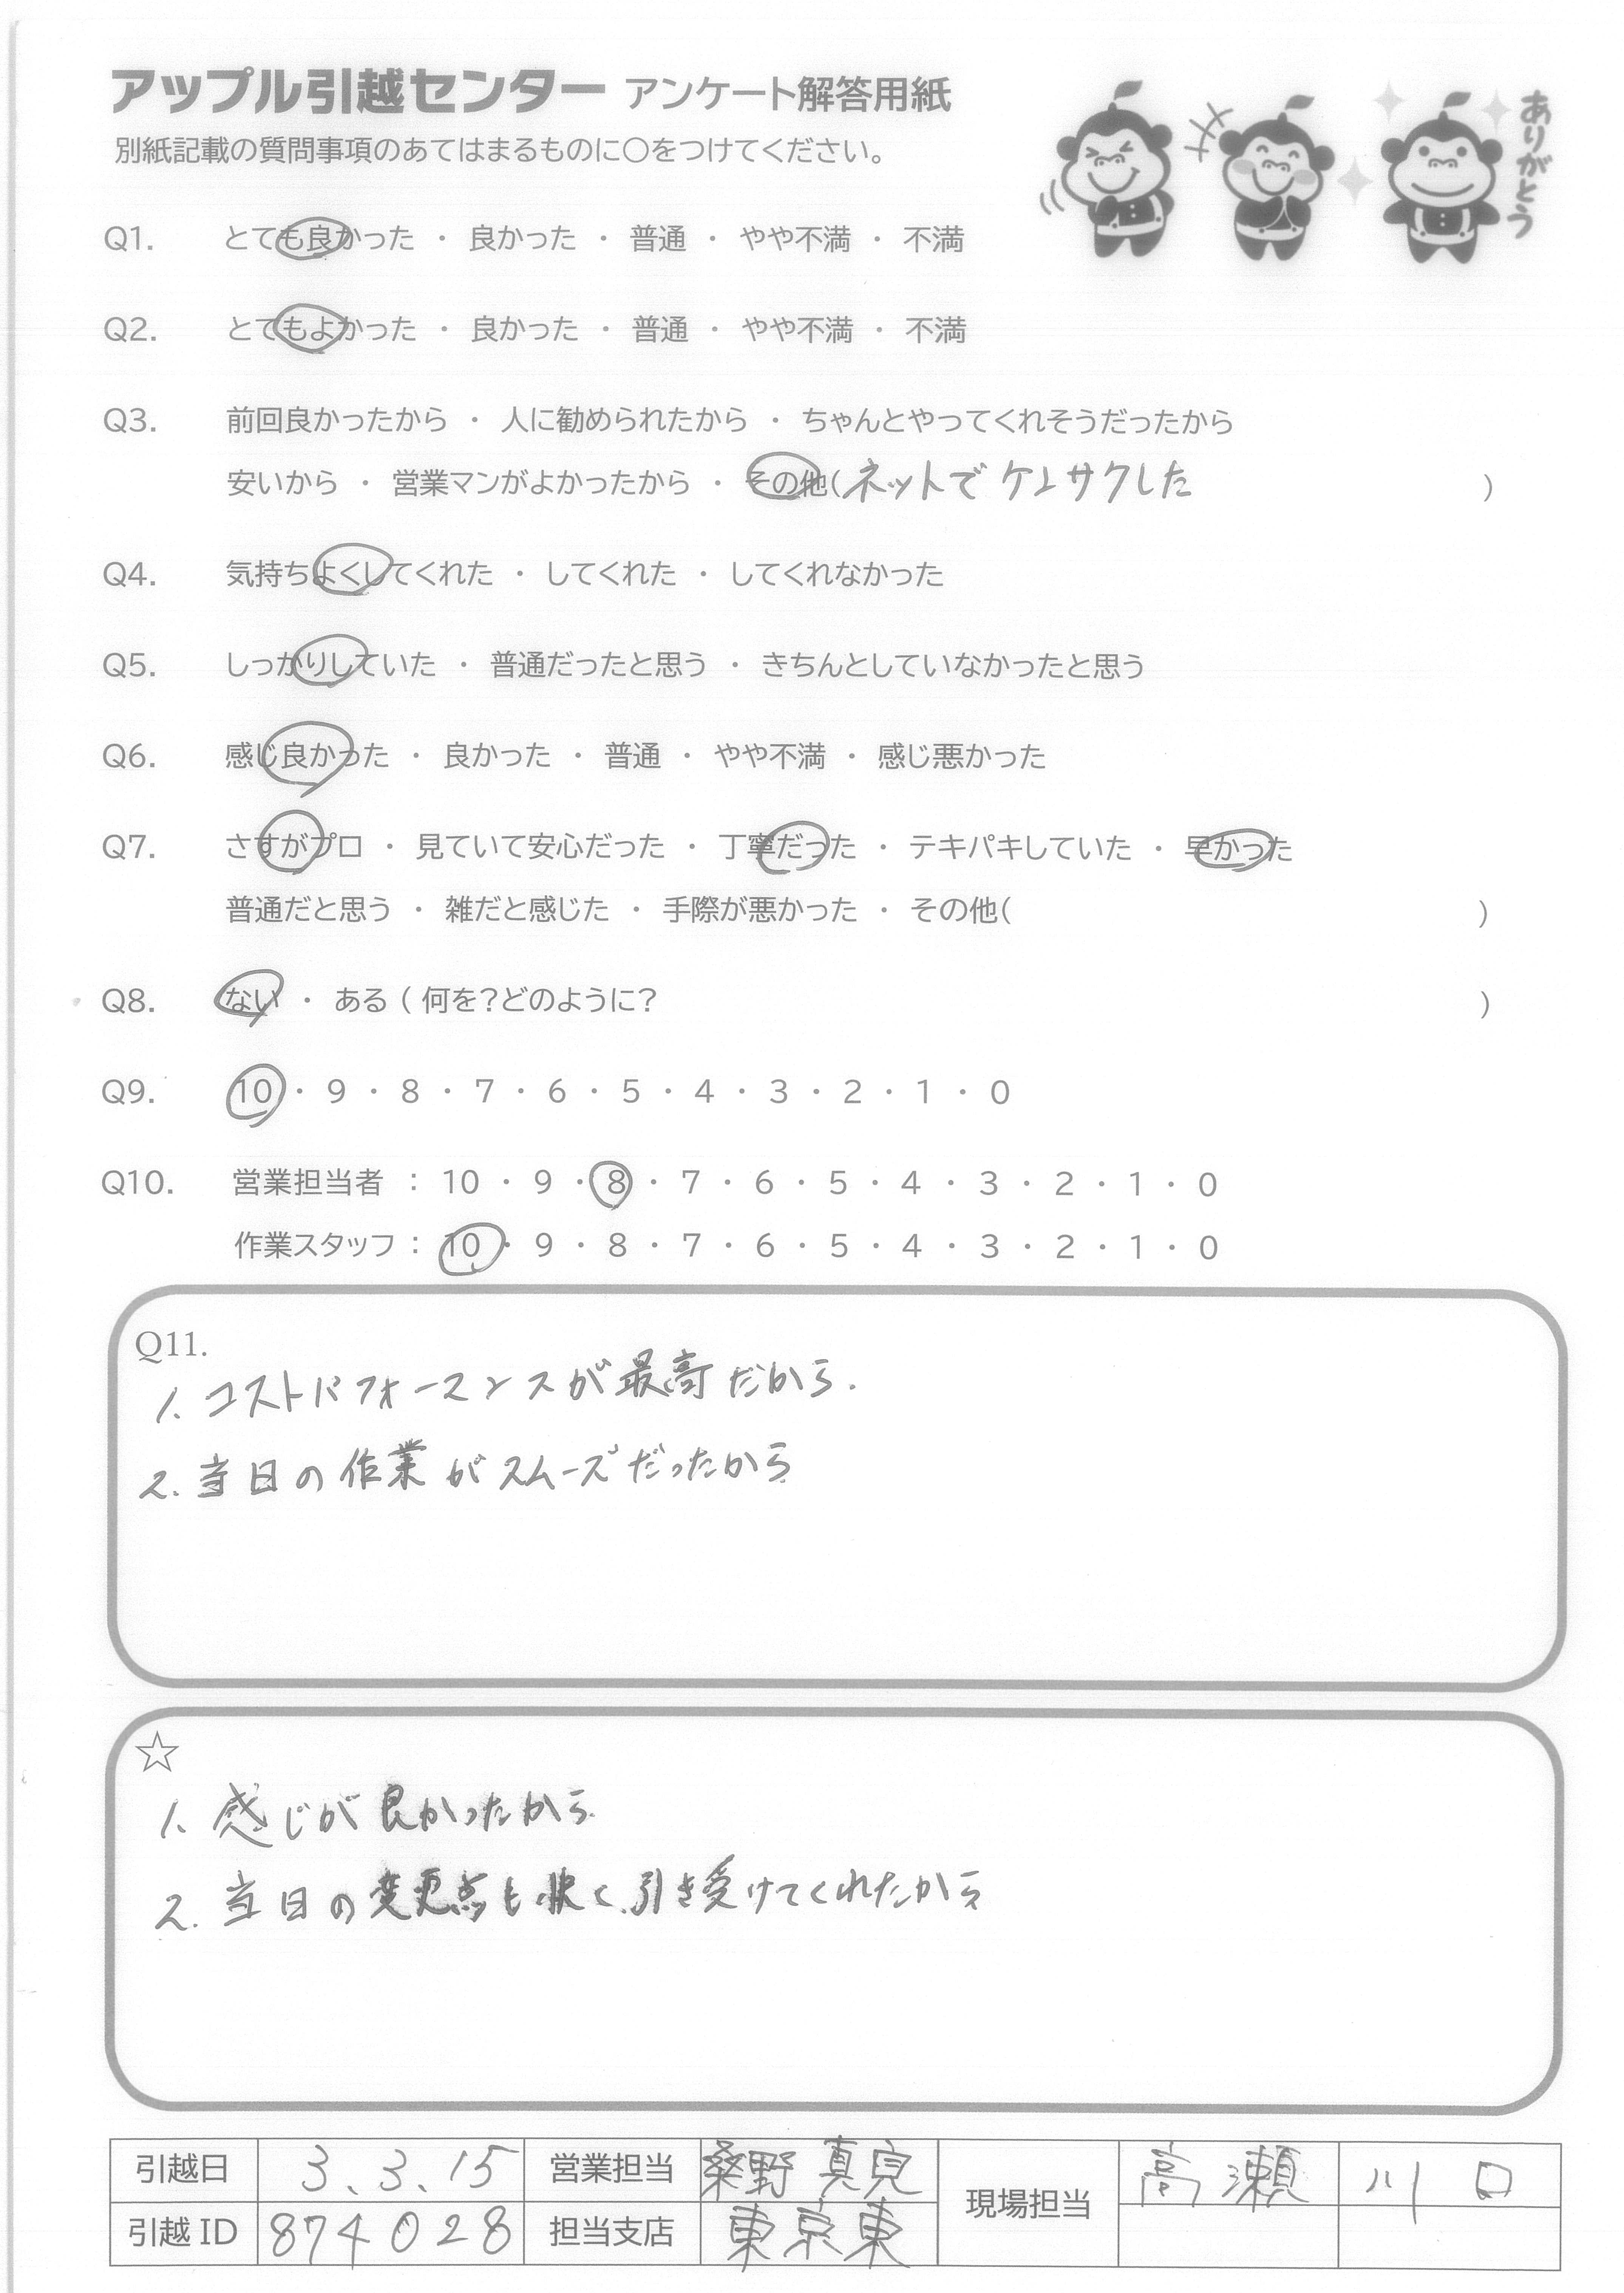 アップル引越センター アンケート解答用紙
別紙記載の質問事項のあてはまるものに○をつけてください。
ありがとう
Q1. とても良かった ・ 良かった ・ 普通 ・ やや不満 ・ 不満
Q2. とてもよかった ・ 良かった ・ 普通 ・ やや不満 ・ 不満
Q3. 前回良かったから ・ 人に勧められたから ・ ちゃんとやってくれそうだったから
安いから ・ 営業マンがよかったから ・ その他(ネットでケンサクした )
Q4. 気持ちよくしてくれた ・ してくれた ・ してくれなかった
Q5. しっかりしていた ・ 普通だったと思う ・ きちんとしていなかったと思う
Q6. 感じ良かった ・ 良かった ・ 普通 ・ やや不満 ・ 感じ悪かった
Q7. さすがプロ ・ 見ていて安心だった ・ 丁寧だった ・ テキパキしていた ・ 早かった
普通だと思う ・ 雑だと感じた ・ 手際が悪かった ・ その他( )
Q8. ない ・ ある ( 何を?どのように? )
Q9. 10 ・ 9 ・ 8 ・ 7 ・ 6 ・ 5 ・ 4 ・ 3 ・ 2 ・ 1 ・ 0
Q10. 営業担当者 : 10 ・ 9 ・ 8 ・ 7 ・ 6 ・ 5 ・ 4 ・ 3 ・ 2 ・ 1 ・ 0
作業スタッフ : 10 ・ 9 ・ 8 ・ 7 ・ 6 ・ 5 ・ 4 ・ 3 ・ 2 ・ 1 ・ 0
Q11.
1. コストパフォーマンスが最高だから.
2. 当日の作業がスムーズだったから
☆
1. 感じが良かったから
2. 当日の変更点も快く引き受けてくれたから
引越日 3.3.15 営業担当 桑野 真 現場担当 高瀬 川口
引越ID 874028 担当支店 東京東